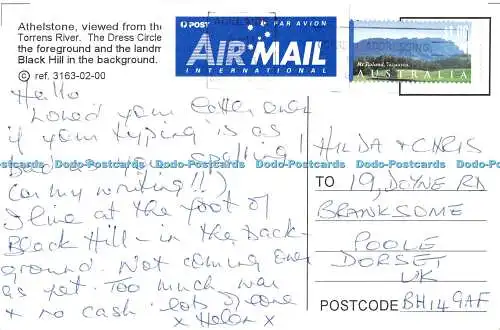 Athelstone, viewed from the
Torrens River. The Dress Circle
the foreground and the landm
Black Hill in the background.
© ref. 3163-02-00
POST PAR AVION
AIR MAIL
INTERNATIONAL
Mt Roland, Tasmania
AUSTRALIA
Hello
Loved your letter even
if your typing is as
bad as your spelling!
(or my writing!!)
I live at the foot of
Black Hill - in the back-
ground. Not coming over
as yet. Too much war
& no cash. lots of love
x Helen x
HILDA & CHRIS
TO 19, DOYNE RD
BRANKSOME
POOLE
DORSET
UK
POSTCODE BH14 9AF
Dodo-Postcards Dodo-Postcards Dodo-Postcards Dodo-Postcards Dodo-Postcards